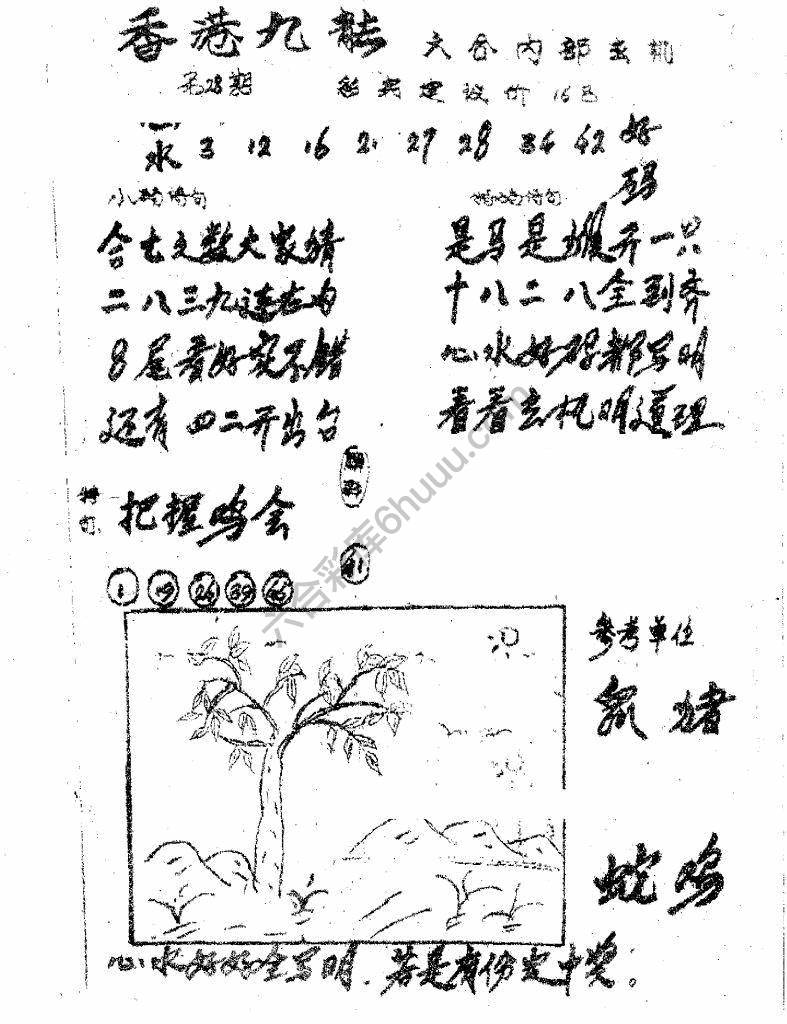 香港九龍 六合内部玄机
第28期 彩券建议价16号
心水 3 12 16 21 27 28 34 42 好码
诗句
合七之数大家猜
二八三九连左右
8尾看好实不错
还有四二开出台
诗句
是马是猴开一只
十八二八全到齐
心水好码都写明
看看玄机明道理
特句
把握鸣会
41
1 19 24 39 46
参考单位
鼠 猪
蛇 鸡
心水好好全写明,若是有份定中奖。
六合彩库6huuu.com